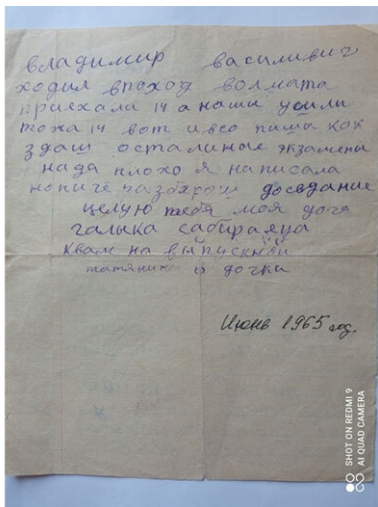 владимир василивич
ходил впоход волмата
приехали 14 а наши ушли
тожа 14 вот и всо пиши как
здаш осталиные экзамены
нада плохо я написала
ничё разбярош досвдание
целую тебя моя дочя
галька сабираяца
квам на выпускной
татянин дочки
Июнь 1965 год.
SHOT ON REDMI 9
AI QUAD CAMERA